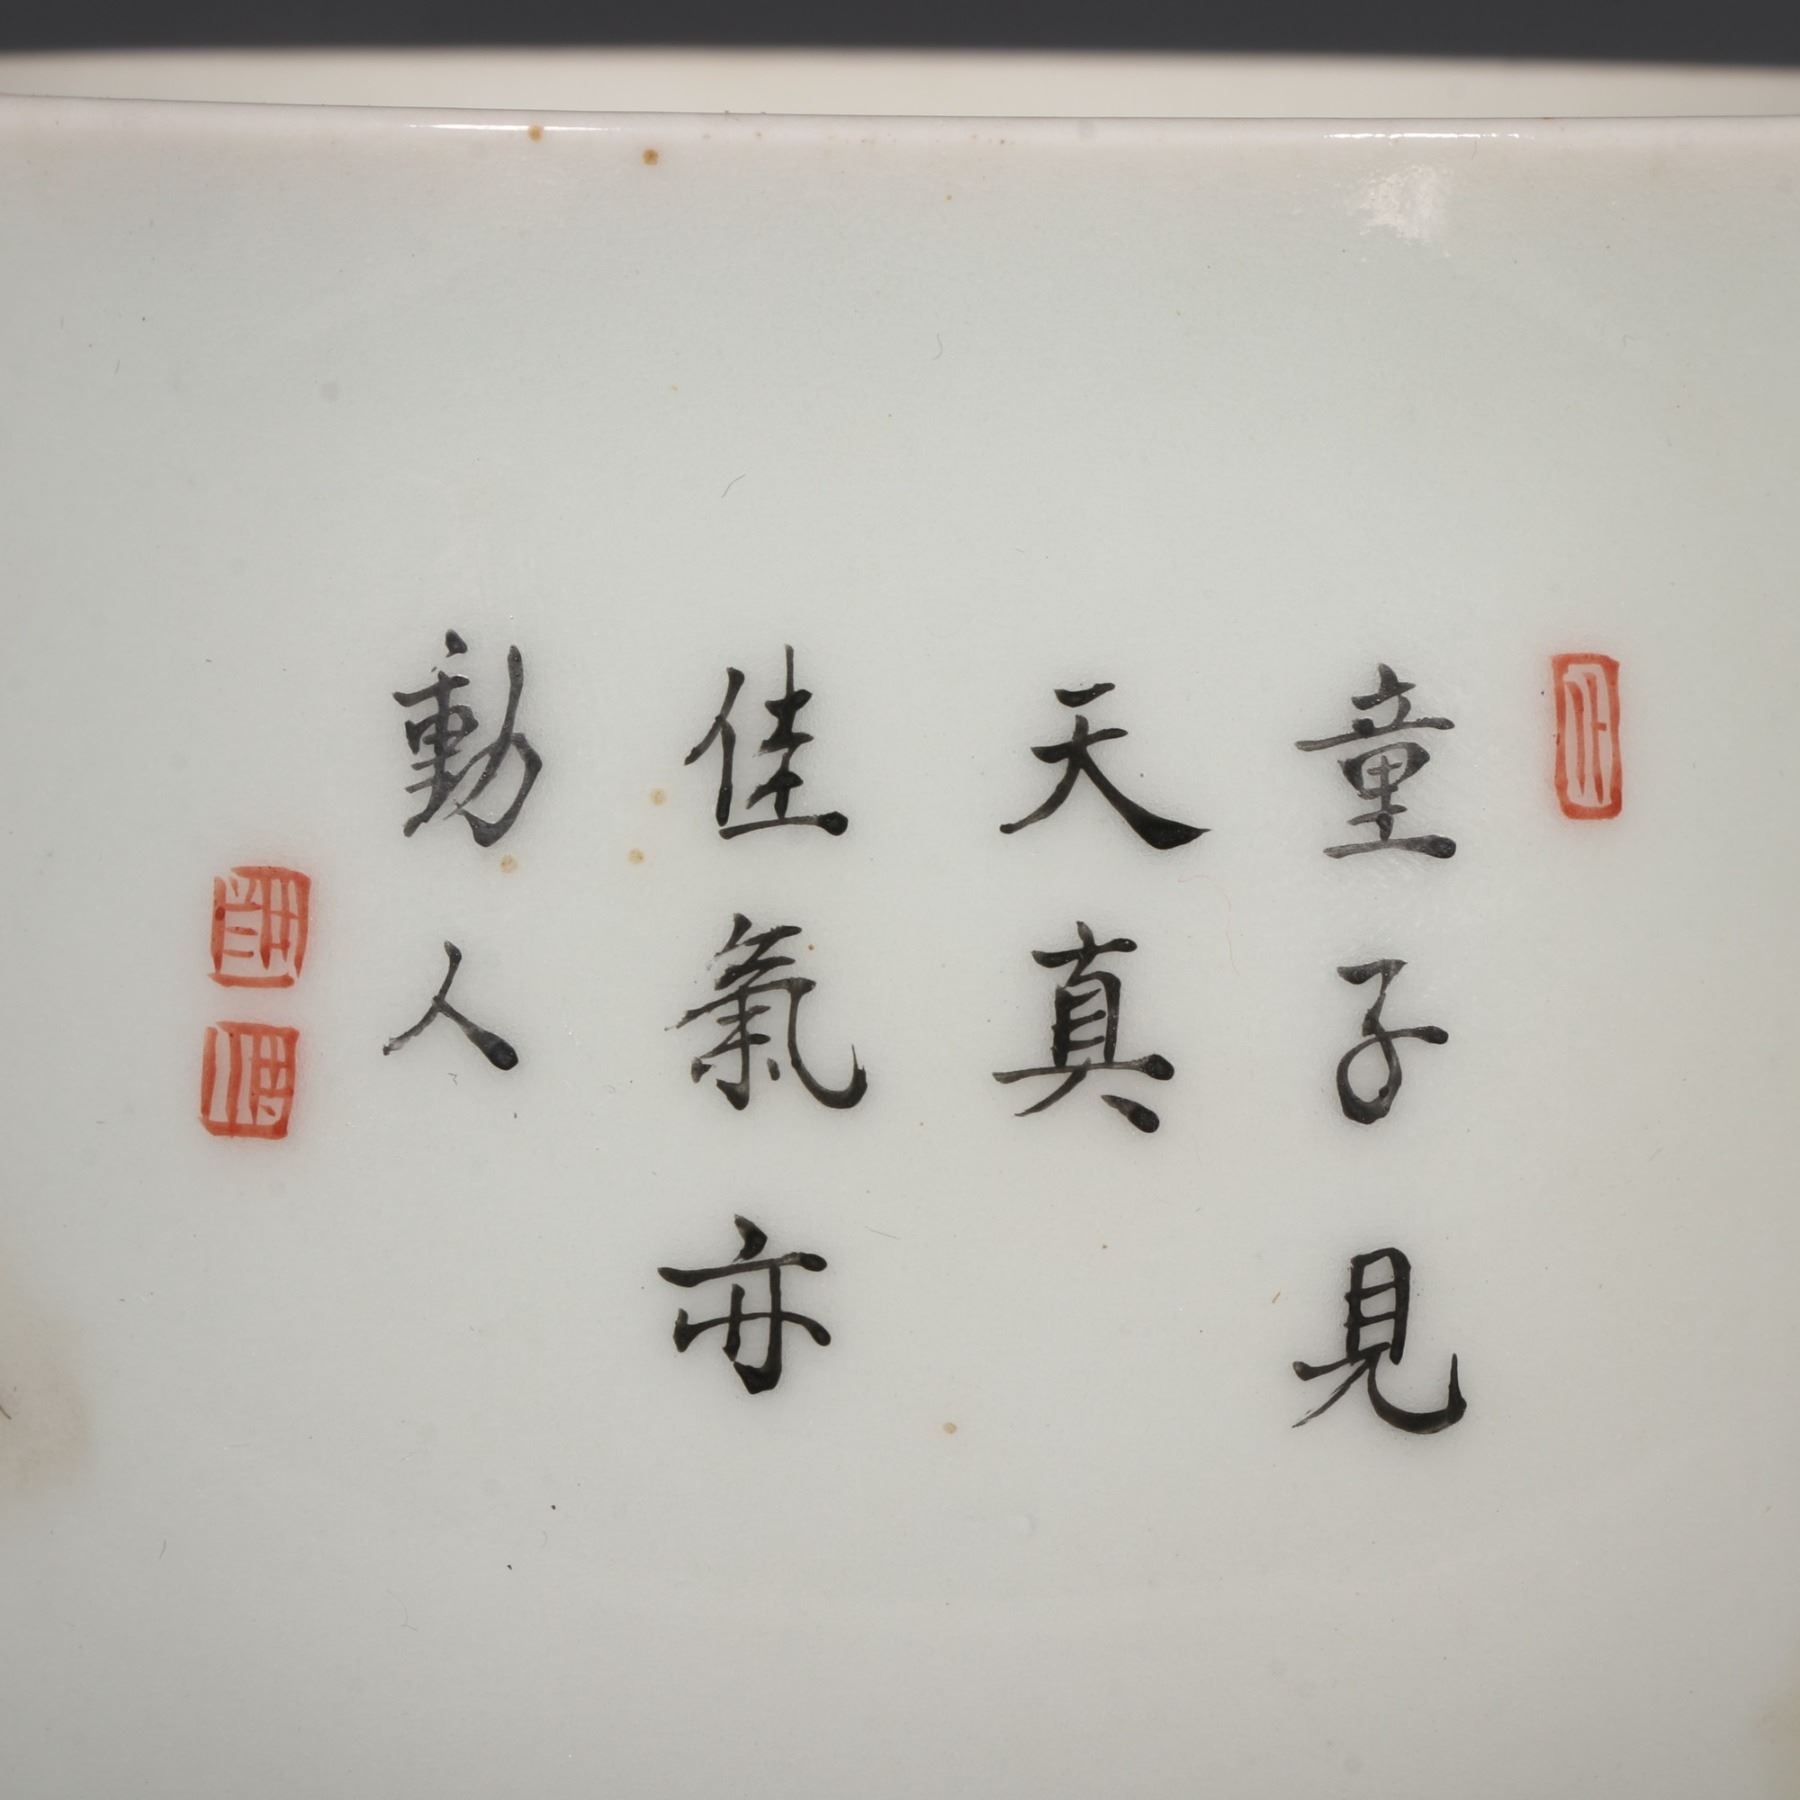 童子見
天真
佳氣亦
動人